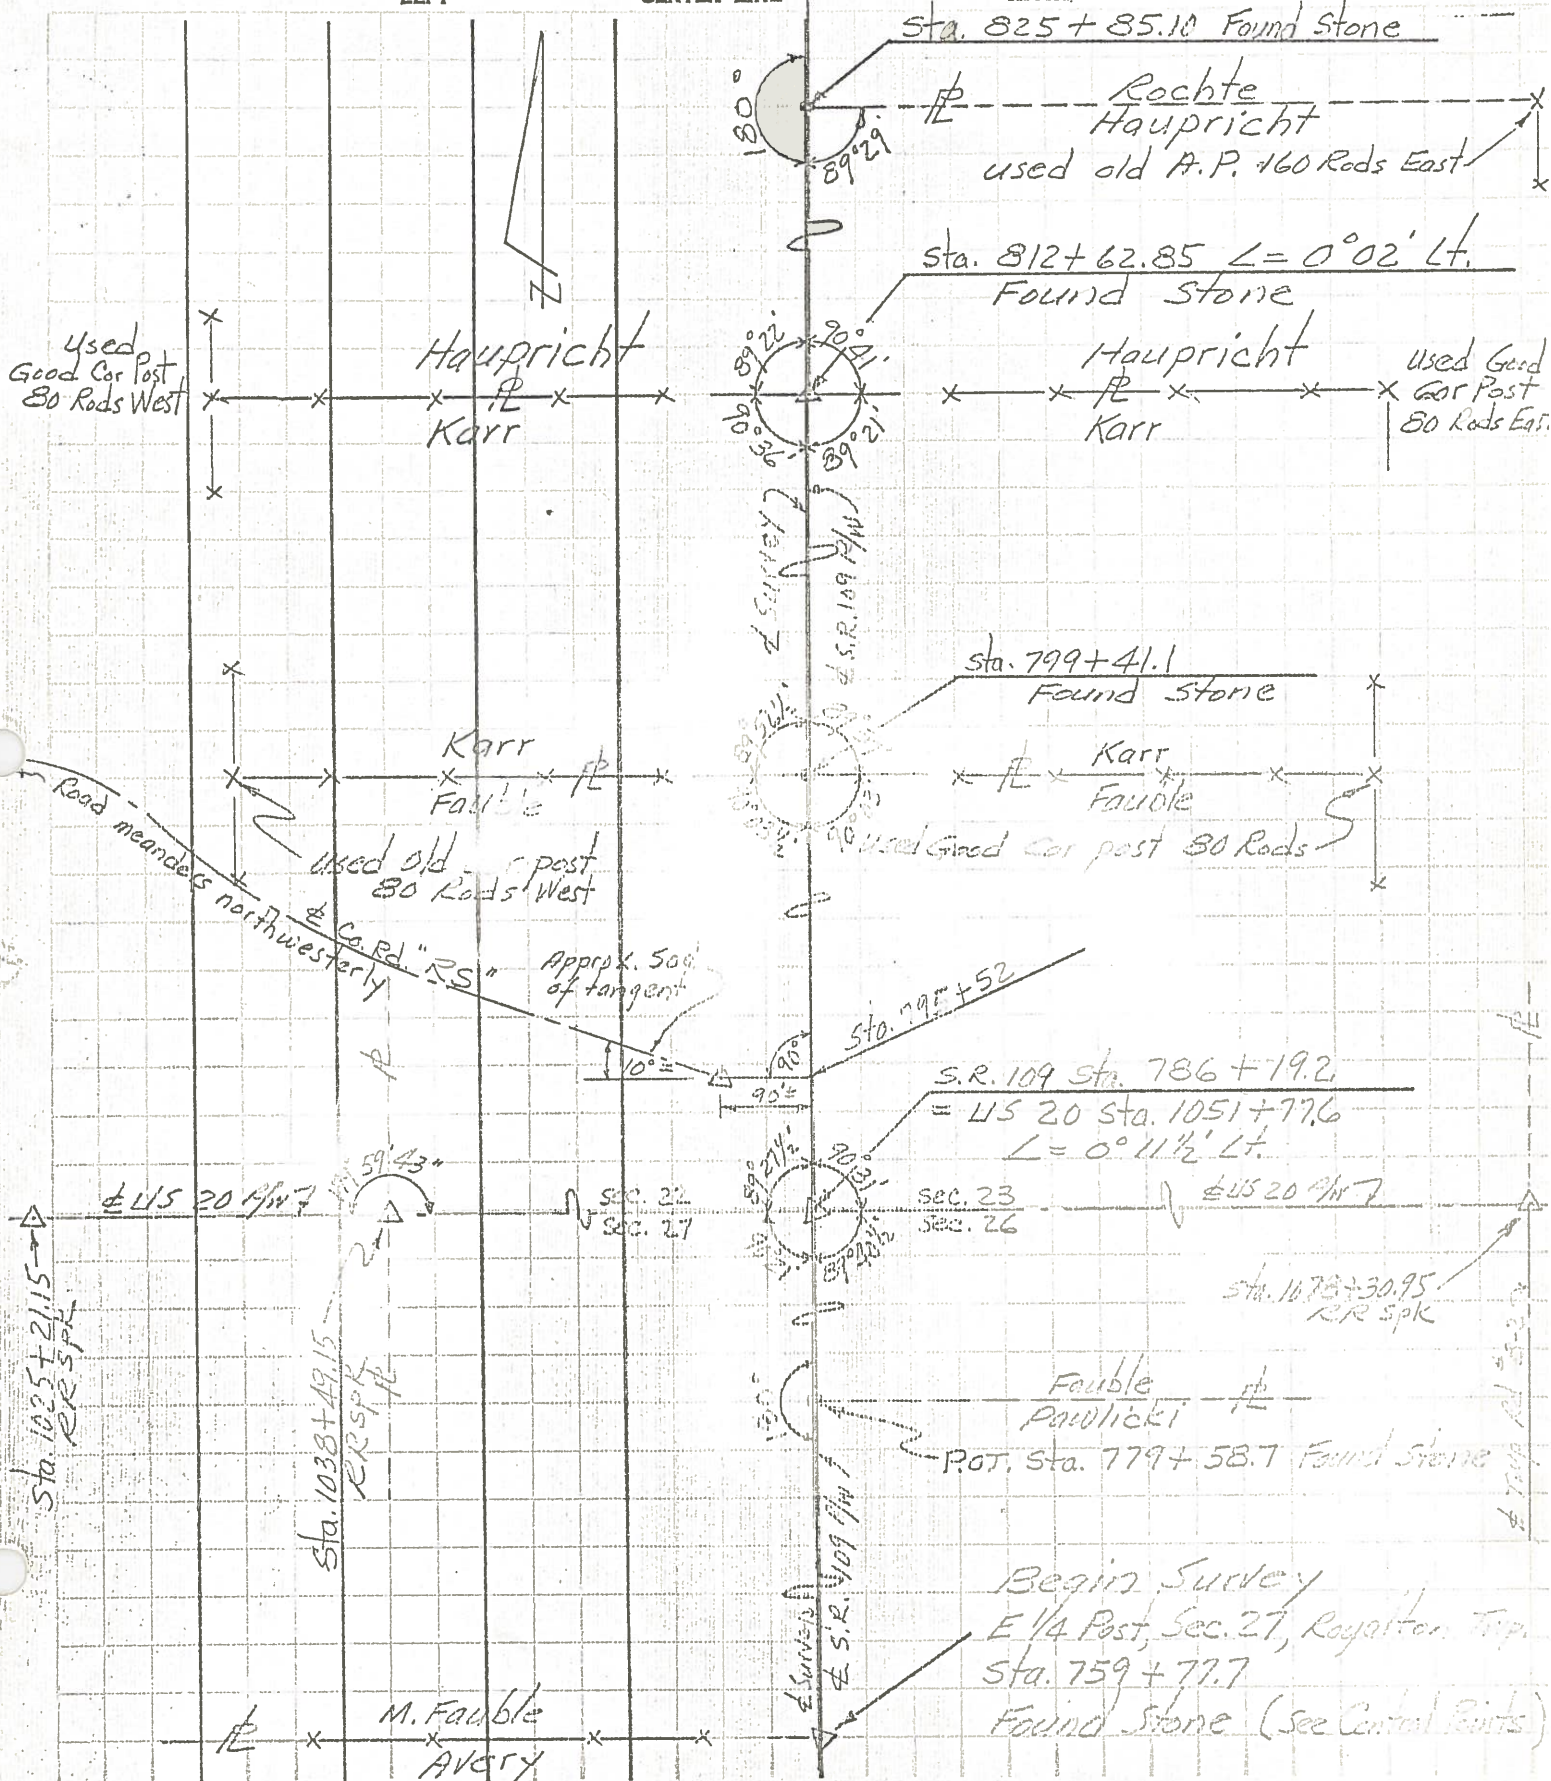 Sta. 825 + 85.10 Found Stone
180°
89°29'
PL
Rochte
Haupricht
used old A.P. 160 Rods East
N
Sta. 812 + 62.85 L = 0°02' Lt.
Found Stone
used
Good Cor Post
80 Rods West
Haupricht
PL
Karr
89°22'
90°41'
90°36'
89°21'
Haupricht
PL
Karr
used Good
Cor Post
80 Rods East
℄ Survey
℄ S.R. 109 R/W
Sta. 799 + 41.1
Found Stone
Karr
PL
Fauble
used old post
80 Rods West
Karr
PL
Fauble
used Good Cor post 80 Rods
Road meanders northwesterly
℄ Co. Rd. "RS"
Approx. 500'
of tangent
10°±
90°
90'±
Sta. 795 + 52
S.R. 109 Sta. 786 + 19.2
= US 20 Sta. 1051 + 77.6
L = 0° 11 ½' Lt.
PL
PL
59'43"
℄ US 20 R/W
Sec. 22
Sec. 27
89° 27½'
Sec. 23
Sec. 26
℄ US 20 R/W
Sta. 1025 + 21.15
RR SPK
Sta. 1038 + 49.15
RR SPK
PL
Sta. 1078 + 30.95
RR Spk
Fauble
PL
Pawlicki
P.O.T. Sta. 779 + 58.7 Found Stone
℄ Survey
℄ S.R. 109 R/W
Begin Survey
E 1/4 Post, Sec. 27, Royalton Twp.
Sta. 759 + 77.7
Found Stone (See Control Points)
PL
M. Fauble
Avery